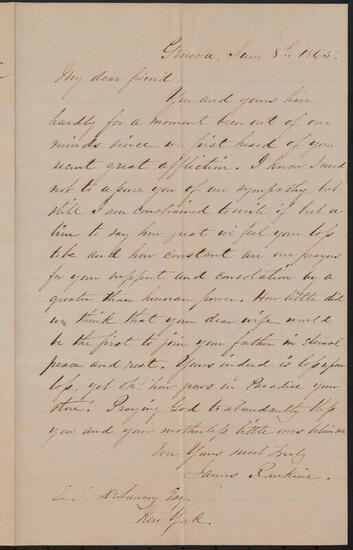 Geneva, June 8th, 1865.
My dear friend
You and yours have
hardly for a moment been out of our
minds since we first heard of your
recent great affliction. I know I need
not to assure you of our sympathy but
still I am constrained to write if but a
line to say how great we feel your loss
to be and how constant are our prayers
for your support and consolation by a
greater than human power. How little did
we think that your dear wife would be
be the first to join your father in eternal
peace and rest. Yours indeed is
loss, yet oh! how grows in Paradise your
store! Praying God to abundantly bless
you and your motherless little ones believe me
Ever Yours most truly
James Rankine.
E. F. DeLancey Esq.
New York.